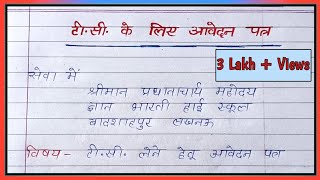 टी.सी. के लिए आवेदन पत्र
3 Lakh + Views
सेवा में
श्रीमान प्रधानाचार्य महोदय
ज्ञान भारती हाई स्कूल
बादशाहपुर लखनऊ
विषय - टी.सी. लेने हेतू आवेदन पत्र